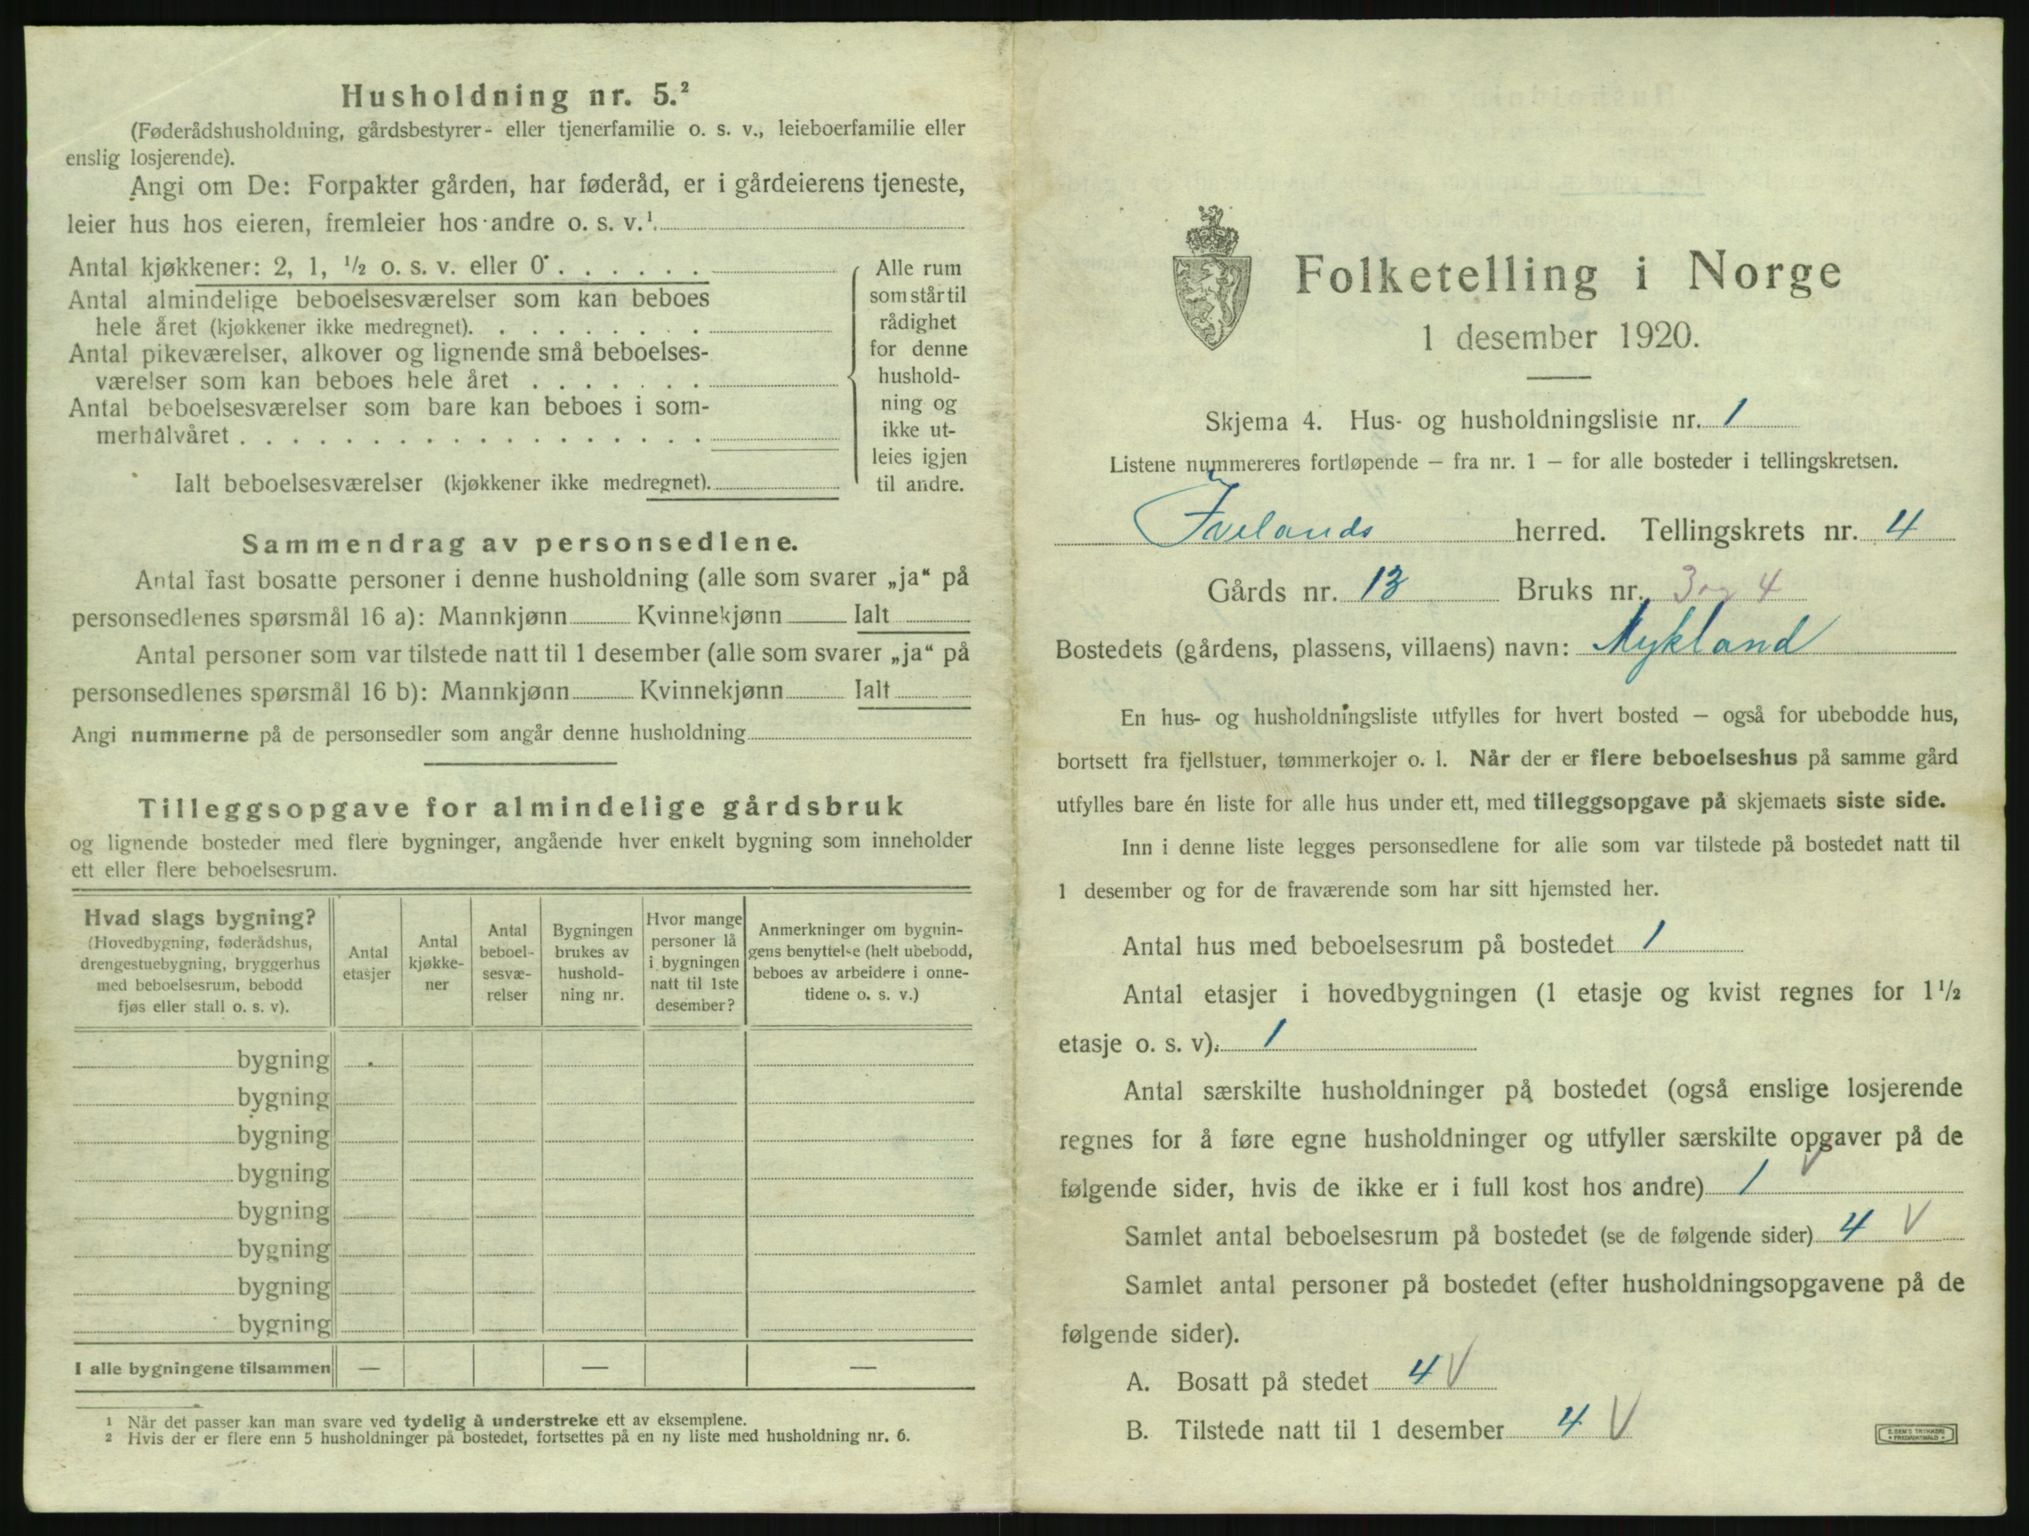 Husholdning nr. 5.²
(Føderådshusholdning, gårdsbestyrer- eller tjenerfamilie o. s. v., leieboerfamilie eller
enslig losjerende).
Angi om De: Forpakter gården, har føderåd, er i gårdeierens tjeneste,
leier hus hos eieren, fremleier hos andre o. s. v.¹
Antal kjøkkener: 2, 1, ½ o. s. v. eller 0 . . . . . .
Antal almindelige beboelsesværelser som kan beboes
hele året (kjøkkener ikke medregnet). . . . . . . . .
Antal pikeværelser, alkover og lignende små beboelses-
værelser som kan beboes hele året . . . . . . .
Antal beboelsesværelser som bare kan beboes i som-
merhalvåret . . . . . . . . . . . . . . . . . .
Ialt beboelsesværelser (kjøkkener ikke medregnet).
Alle rum
som står til
rådighet
for denne
hushold-
ning og
ikke ut-
leies igjen
til andre.
Sammendrag av personsedlene.
Antal fast bosatte personer i denne husholdning (alle som svarer „ja“ på
personsedlenes spørsmål 16 a): Mannkjønn Kvinnekjønn Ialt
Antal personer som var tilstede natt til 1 desember (alle som svarer „ja“ på
personsedlenes spørsmål 16 b): Mannkjønn Kvinnekjønn Ialt
Angi nummerne på de personsedler som angår denne husholdning
Tilleggsopgave for almindelige gårdsbruk
og lignende bosteder med flere bygninger, angående hver enkelt bygning som inneholder
ett eller flere beboelsesrum.
Hvad slags bygning?
(Hovedbygning, føderådshus,
drengestuebygning, bryggerhus
med beboelsesrum, bebodd
fjøs eller stall o. s. v).
Antal
etasjer
Antal
kjøkke-
ner
Antal
beboel-
sesvæ-
relser
Bygningen
brukes av
hushold-
ning nr.
Hvor mange
personer lå
i bygningen
natt til 1ste
desember?
Anmerkninger om bygnin-
gens benyttelse (helt ubebodd,
beboes av arbeidere i onne-
tidene o. s. v.)
bygning
bygning
bygning
bygning
bygning
bygning
bygning
bygning
I alle bygningene tilsammen — — —
1 Når det passer kan man svare ved tydelig å understreke ett av eksemplene.
2 Hvis der er flere enn 5 husholdninger på bostedet, fortsettes på en ny liste med husholdning nr. 6.
Folketelling i Norge
1 desember 1920.
Skjema 4. Hus- og husholdningsliste nr. 1
Listene nummereres fortløpende — fra nr. 1 — for alle bosteder i tellingskretsen.
Ivelands herred. Tellingskrets nr. 4
Gårds nr. 13 Bruks nr. 3 og 4
Bostedets (gårdens, plassens, villaens) navn: Mykland
En hus- og husholdningsliste utfylles for hvert bosted — også for ubebodde hus,
bortsett fra fjellstuer, tømmerkojer o. l. Når der er flere beboelseshus på samme gård
utfylles bare én liste for alle hus under ett, med tilleggsopgave på skjemaets siste side.
Inn i denne liste legges personsedlene for alle som var tilstede på bostedet natt til
1 desember og for de fraværende som har sitt hjemsted her.
Antal hus med beboelsesrum på bostedet 1
Antal etasjer i hovedbygningen (1 etasje og kvist regnes for 1½
etasje o. s. v). 1
Antal særskilte husholdninger på bostedet (også enslige losjerende
regnes for å føre egne husholdninger og utfyller særskilte opgaver på de
følgende sider, hvis de ikke er i full kost hos andre) 1 V
Samlet antal beboelsesrum på bostedet (se de følgende sider) 4 V
Samlet antal personer på bostedet (efter husholdningsopgavene på de
følgende sider).
A. Bosatt på stedet 4 V
B. Tilstede natt til 1 desember 4 V